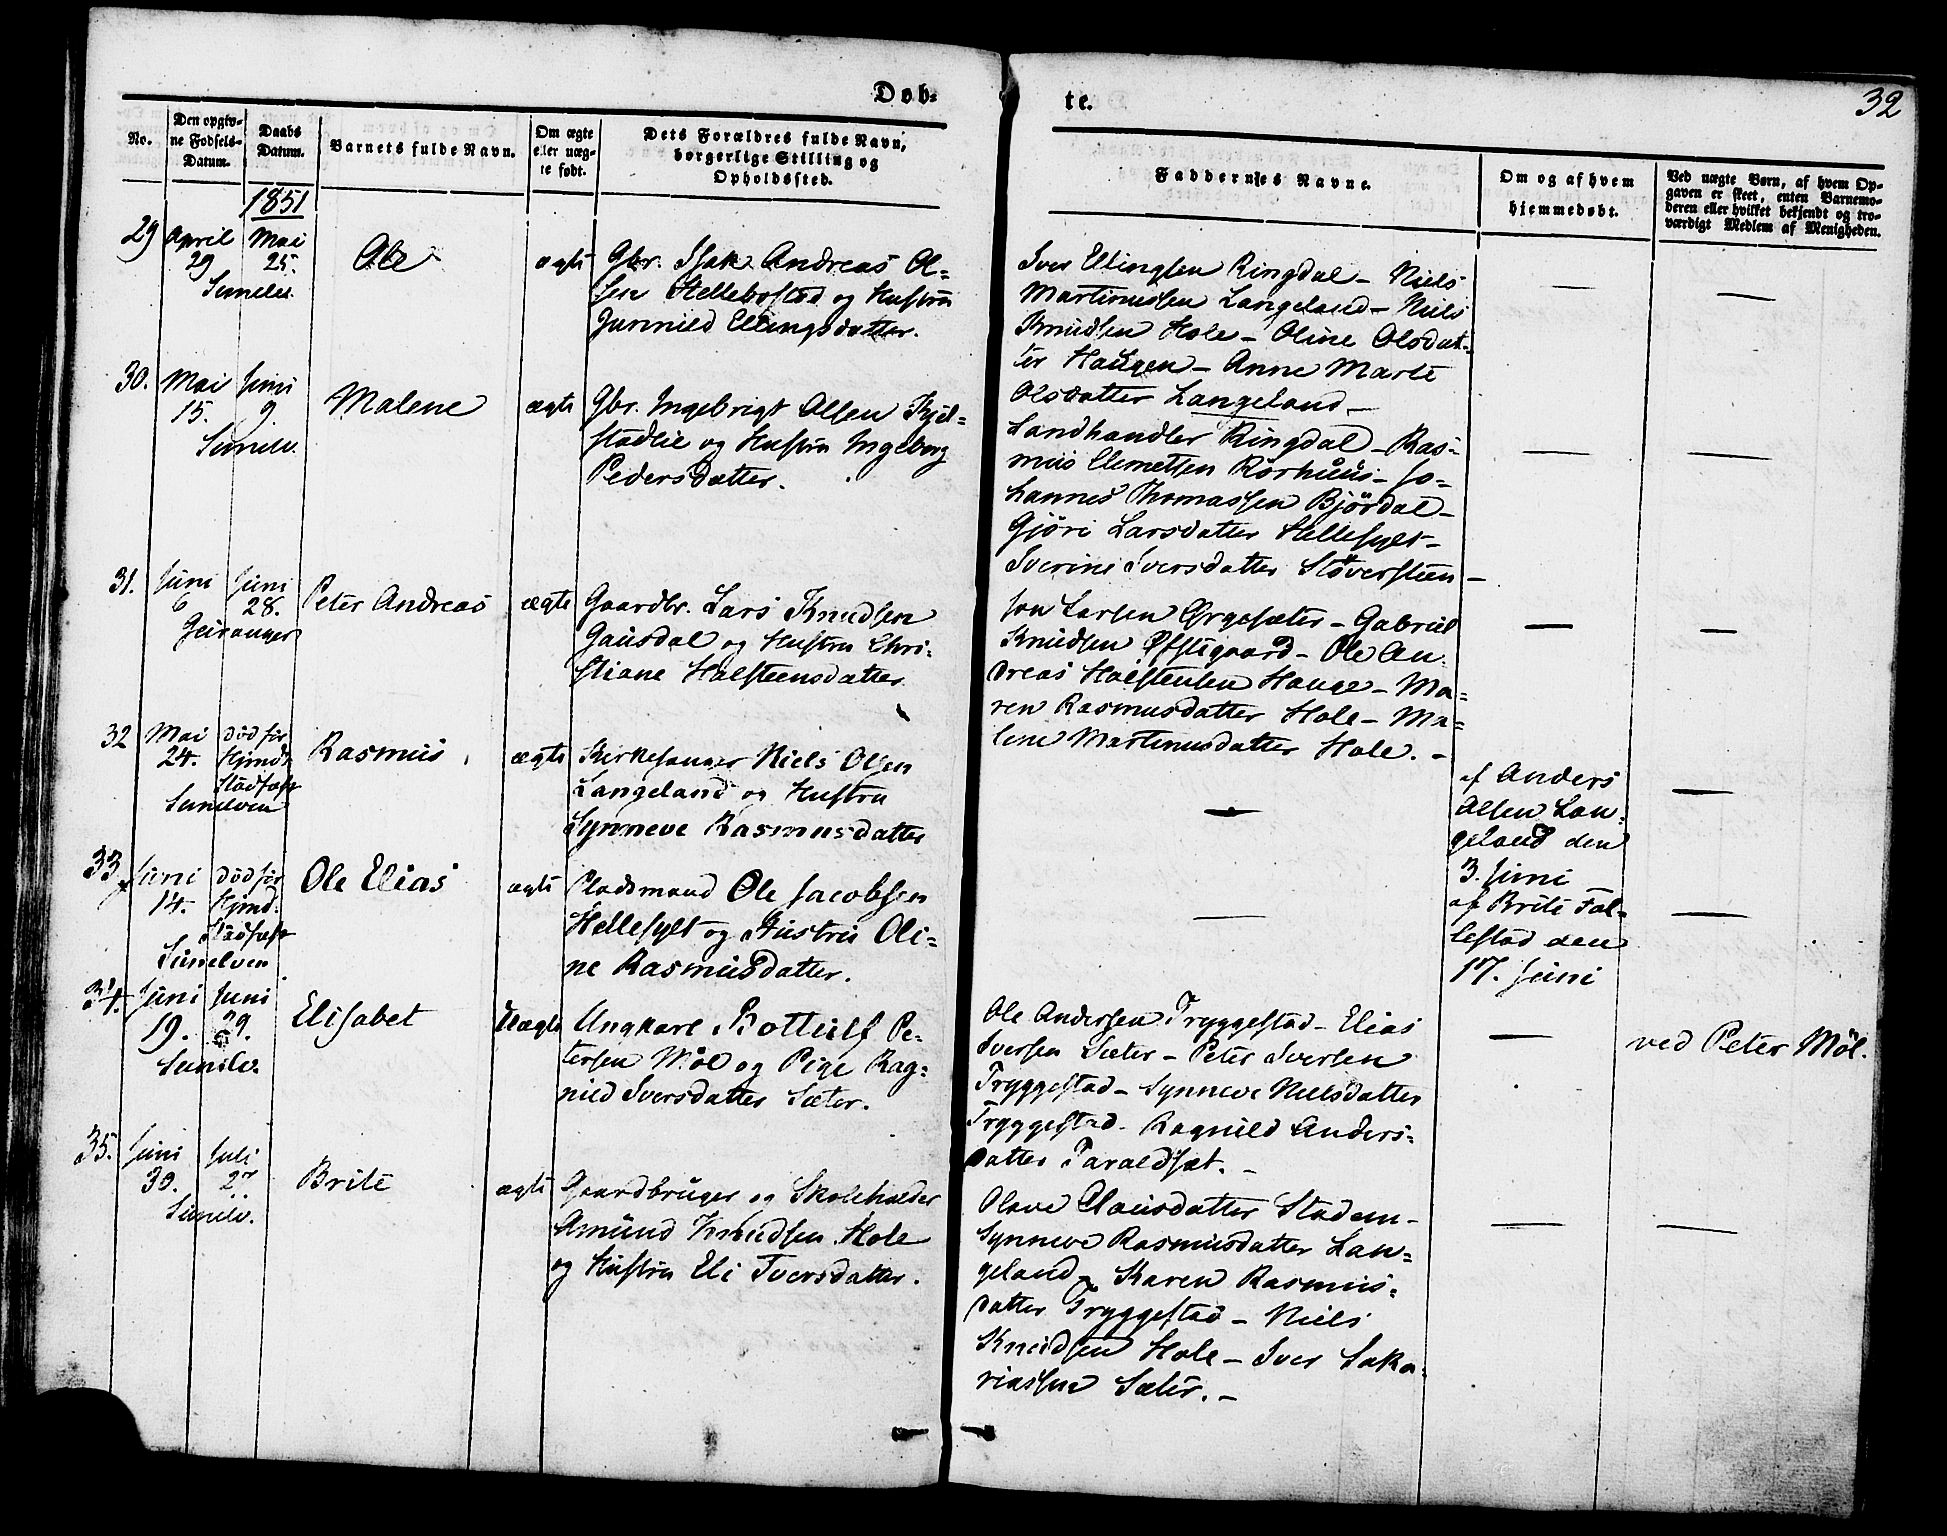 Døb-
te.
32
No.
Den opgiv-
ne Fødsels-
Datum.
Daabs
Datum.
Barnets fulde Navn.
Om ægte
eller uæg-
te født.
Dets Forældres fulde Navn,
borgerlige Stilling og
Opholdssted.
Faddernes Navne.
Om og af hvem
hjemmedøbt.
Ved uægte Børn, af hvem Op-
gaven er skeet, enten Barnemo-
deren eller hvilket bekjendt og tro-
værdigt Medlem af Menigheden.
1851
29 April Mai
29 25. Ole ægte
Sunelv.
Gbr. Isak Andreas Ol-
sen Hellebostad og Hustru
Gunnild Ellingsdatter.
Iver Ellingsen Ringdal - Niels
Martinussen Langeland - Niels
Knudsen Hole - Oline Olsdat-
ter Haugen - Anne Marte
Olsdatter Langeland -
30. Mai Juni
15. 9 Malene ægte
Sunelv.
Gbr. Ingebrigt Olsen Kjel-
stadlie og Hustru Ingeborg
Pedersdatter.
Landhandler Ringdal - Ras-
mus Clemetsen Rørhuus - Jo-
hannes Thomassen Bjørdal -
Gjøri Larsdatter Hellesylt -
Iverine Iversdatter Støversteen -
31. Juni Juni
6 28. Peter Andreas ægte
Geiranger
Gaardbr. Lars Knudsen
Gausdal og Hustru Chri-
stiane Holsteensdatter
Jon Larsen Ørgesæter - Gabriel
Knudsen Øfstigaard - Ole An-
dreas Holstensen Hauge - Ma-
ren Rasmusdatter Hole - Ma-
lene Martinusdatter Hole. -
32 Mai død før
24. Hjmd.
Stadfæst
Sunelven
Rasmus ægte
Kirkesanger Niels Olsen
Langeland og Hustru
Synneve Rasmusdatter
af Anders
Olsen Lan-
geland den
3. Juni
33 Juni død før
14. Hjmd.
Stadfæst
Sunelven
Ole Elias ægte
Pladsmand Ole Jacobsen
Hellesylt og Hustru Oli-
ne Rasmusdatter.
af Brite Tal-
lestad den
17. Juni
34. Juni Juni
19. 29. Elisabet Uægte
Sunelv.
Ungkarl Bottulf Pe-
tersen Møl og Pige Rag-
nild Iversdatter Sæter.
Ole Andersen Tryggestad - Elias
Iversen Sæter - Peter Iversen
Tryggestad - Synneve Nielsdatter
Tryggestad - Ragnild Anders-
datter Taraldset. -
ved Peter Møl.
35. Juni Juli
30. 2den Brite ægte
Sunelv.
Gaardbruger og Skoleholder
Amund Knudsen Hole
og Hustru Eli Iversdatter.
Olave Clausdatter Stadem -
Synneve Rasmusdatter Lan-
geland - Karen Rasmus-
datter Tryggestad - Niels
Knudsen Hole - Iver Saka-
riassen Sæter. -